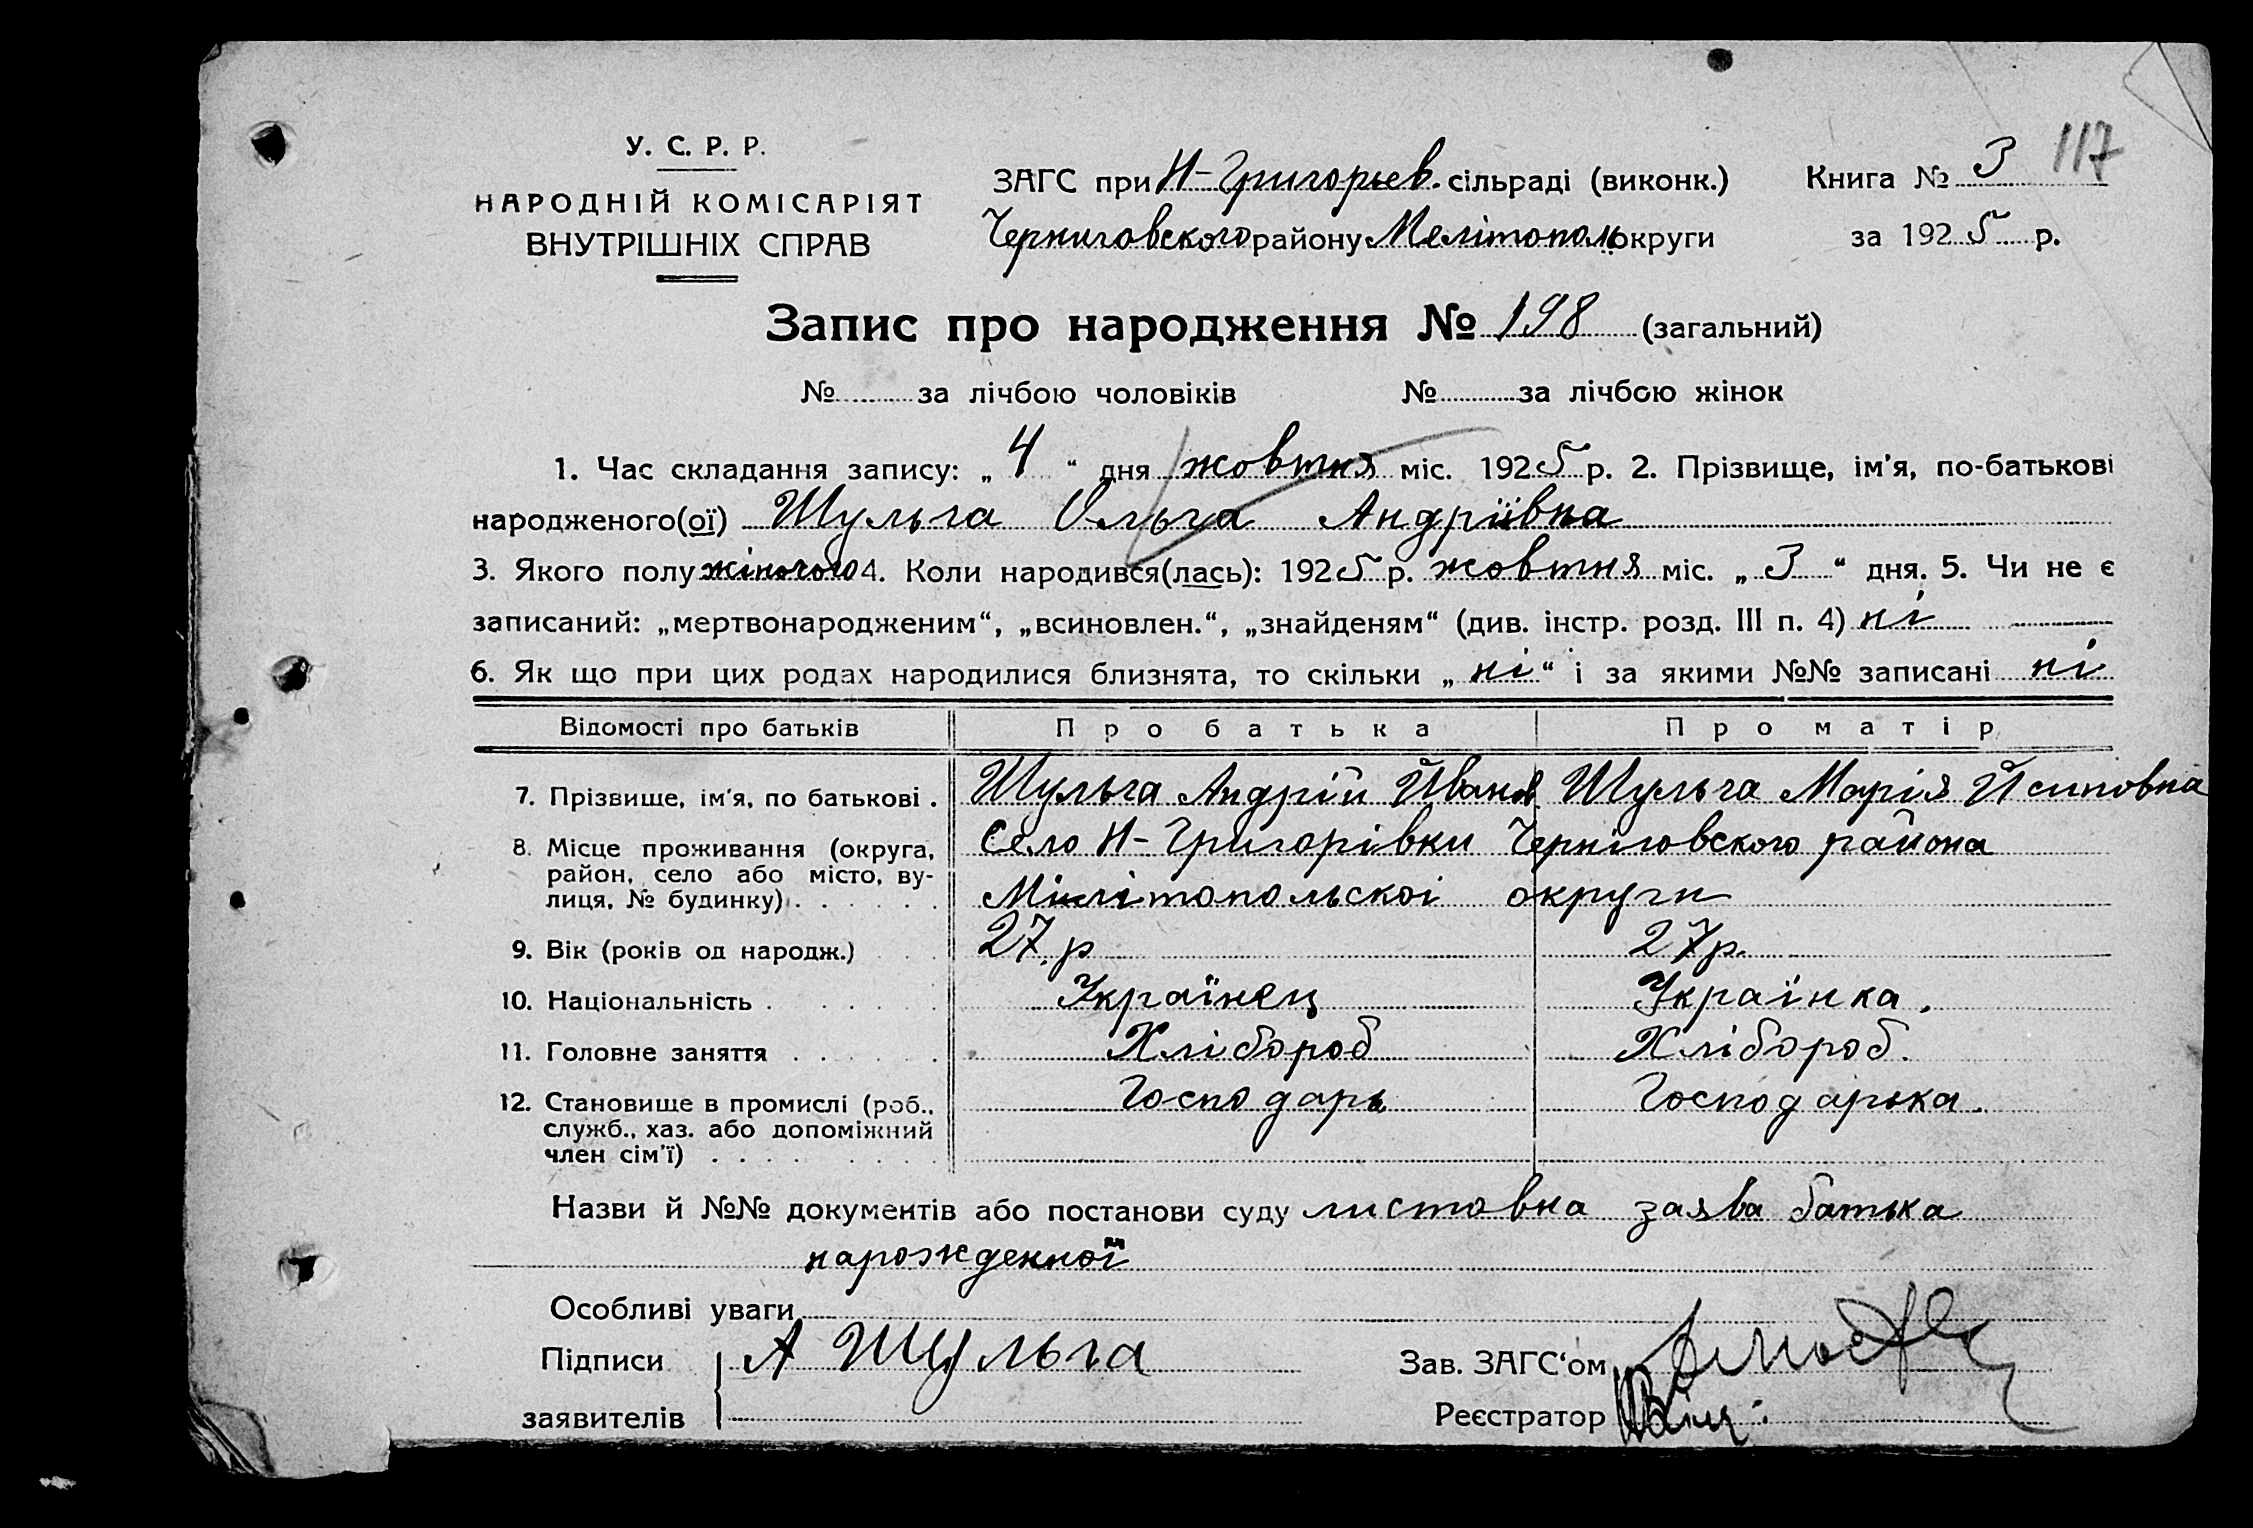 117
У. С. Р. Р.
НАРОДНІЙ КОМІСАРІЯТ
ВНУТРІШНІХ СПРАВ
ЗАГС при Н-Григорьев. сільраді (виконк.)
Черниговского району Мелітополь округи
Книга № 3
за 1925 р.
Запис про народження № 198 (загальний)
№ за лічбою чоловіків № за лічбою жінок
1. Час складання запису: „ 4 “ дня жовтня міс. 1925 р. 2. Прізвище, ім’я, по-батькові
народженого(ої) Шульга Ольга Андріївна
3. Якого полу жіночого 4. Коли народився(лась): 1925 р. жовтня міс. „ 3 “ дня. 5. Чи не є
записаний: „мертвонародженим“, „всиновлен.“, „знайденям“ (див. інстр. розд. III п. 4) ні
6. Як що при цих родах народилися близнята, то скільки „ ні “ і за якими №№ записані ні
Відомості про батьків Про батька Про матір
7. Прізвище, ім’я, по батькові . Шульга Андрій Йванов Шульга Марія Йсиповна
8. Місце проживання (округа, Село Н-Григорівки Черніговского района
район, село або місто, ву-
лиця, № будинку) . . . . . . Мілітопольскоі округи
9. Вік (років од народж.) 27. р 27 р.
10. Національність . Українец Украінка.
11. Головне заняття Хлібороб Хлібороб.
12. Становище в промислі (роб., Господарь Господарька.
служб., хаз. або допоміжний
член сім’ї)
Назви й №№ документів або постанови суду листовна заява батька
нарожденної
Особливі уваги
Підписи А Шульга
заявителів
Зав. ЗАГС‘ом
Реєстратор